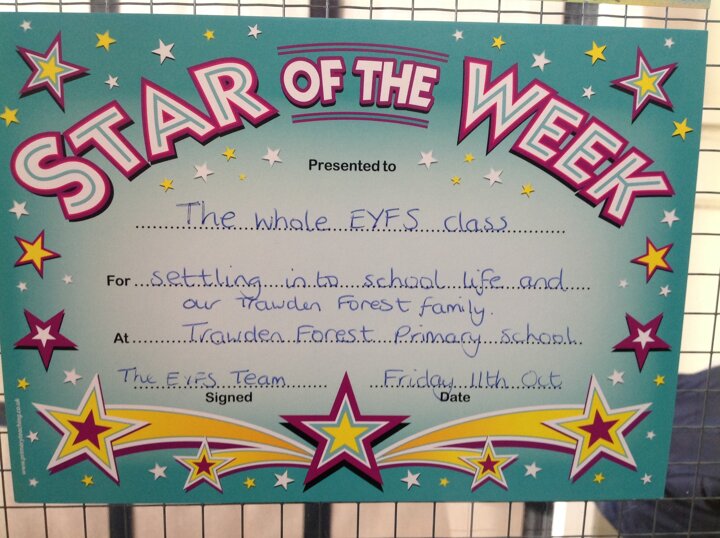 STAR OF THE WEEK
Presented to
The whole EYFS class
For settling in to school life and
our Trawden Forest family.
At Trawden Forest Primary school
The EYFS Team Friday 11th Oct
Signed Date
www.primaryteaching.co.uk